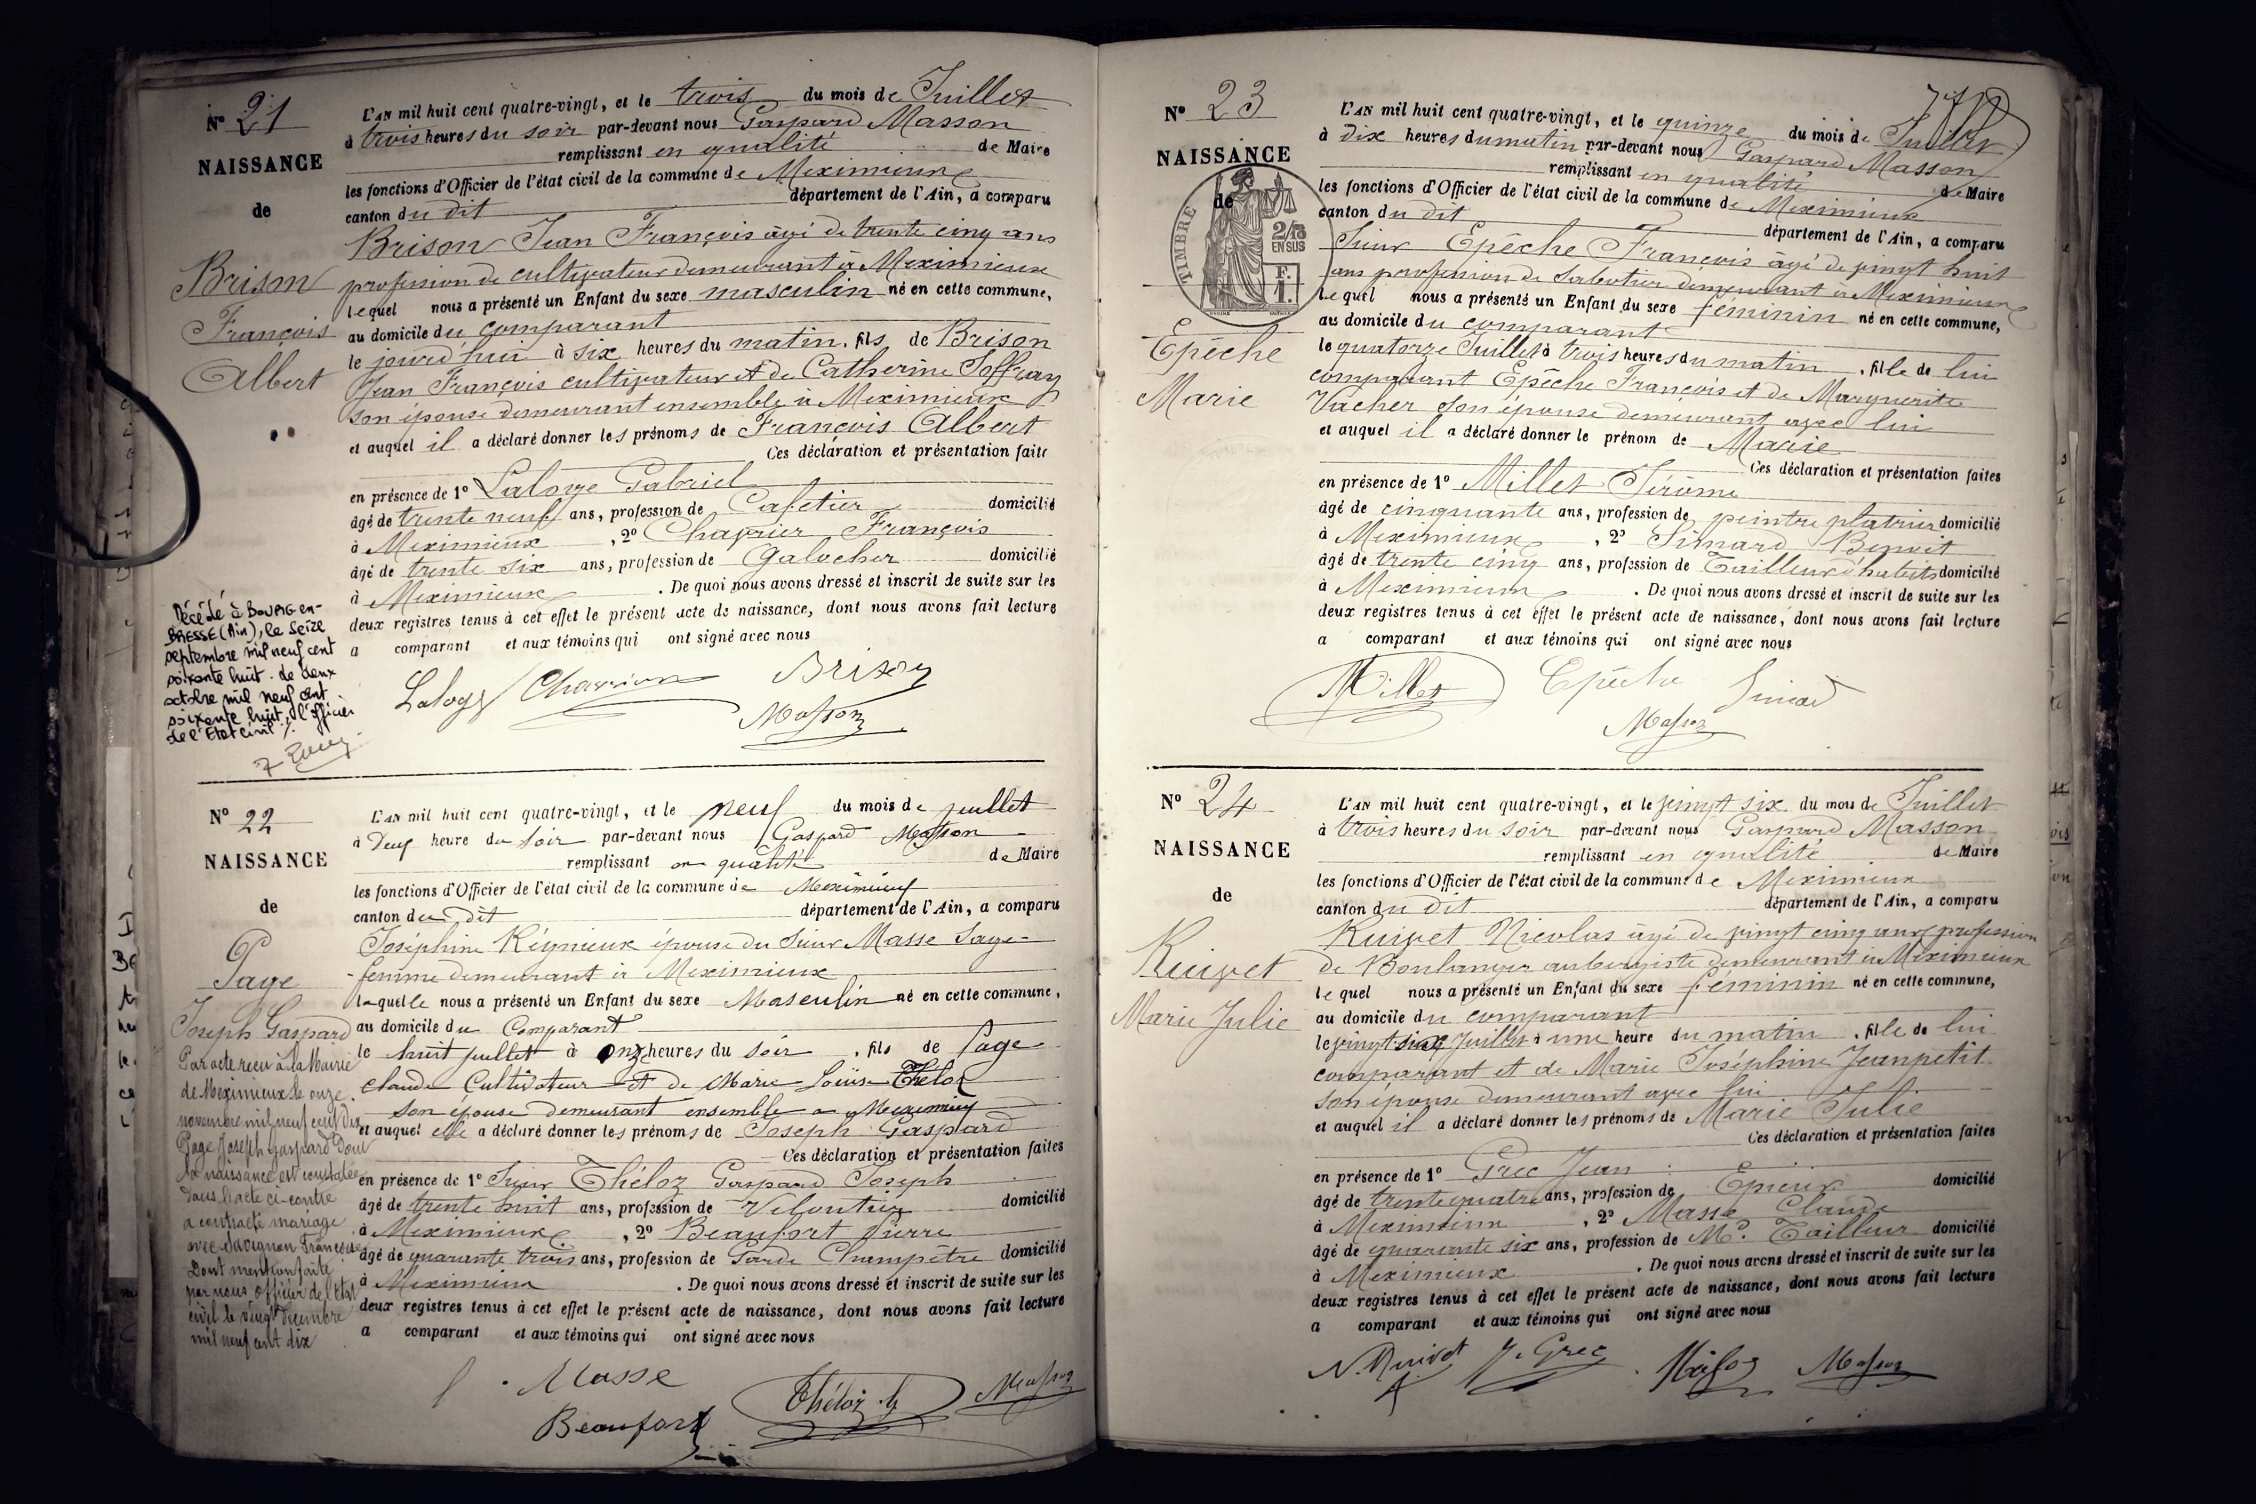 N° 21
NAISSANCE
de
Brison
François
Albert
L'AN mil huit cent quatre-vingt, et le trois du mois de Juillet
à trois heures du soir par-devant nous Gaspard Masson
remplissant en qualité de Maire
les fonctions d'Officier de l'état civil de la commune de Meximieux
canton du dit département de l'Ain, a comparu
Brison Jean François âgé de trente cinq ans
profession de cultivateur demeurant à Meximieux
lequel nous a présenté un Enfant du sexe masculin né en cette commune,
au domicile du comparant
le jourd'hui à six heures du matin, fils de Brison
Jean François cultivateur et de Catherine Joffray
son épouse demeurant ensemble à Meximieux
et auquel il a déclaré donner les prénoms de François Albert
Ces déclaration et présentation faite
en présence de 1° Laloge Gabriel
âgé de trente neuf ans, profession de Cafetier domicilié
à Meximieux, 2° Charrier François
âgé de trente six ans, profession de Galocher domicilié
à Meximieux. De quoi nous avons dressé et inscrit de suite sur les
deux registres tenus à cet effet le présent acte de naissance, dont nous avons fait lecture
a comparant et aux témoins qui ont signé avec nous
Brison
Masson
Décédé à BOURG-en-
BRESSE (Ain), le seize
septembre mil neuf cent
soixante huit. Le deux
octobre mil neuf cent
soixante huit, l'officier
de l'Etat civil %.
N° 22
NAISSANCE
de
Page
Joseph Gaspard
Par acte reçu à la Mairie
de Meximieux le onze
novembre mil neuf cent dix
Page Joseph Gaspard dont
la naissance est constatée
dans l'acte ci-contre
a contracté mariage
avec Savignon Françoise
Dont mention faite
par nous officier de l'Etat
civil le vingt décembre
mil neuf cent dix
L'AN mil huit cent quatre-vingt, et le neuf du mois de juillet
à Deux heure du soir par-devant nous Gaspard Masson
remplissant en qualité de Maire
les fonctions d'Officier de l'état civil de la commune de Meximieux
canton du dit département de l'Ain, a comparu
Joséphine Régnieux épouse du Sieur Masse Sage-
femme demeurant à Meximieux
laquelle nous a présenté un Enfant du sexe Masculin né en cette commune,
au domicile du Comparant
le huit juillet à onze heures du soir, fils de Page
Claude Cultivateur et de Marie Louise Théloz
son épouse demeurant ensemble à Meximieux
et auquel elle a déclaré donner les prénoms de Joseph Gaspard
Ces déclaration et présentation faites
en présence de 1° Sieur Théloz Gaspard Joseph
âgé de trente huit ans, profession de Veloutier domicilié
à Meximieux, 2° Beaufort Pierre
âgé de quarante trois ans, profession de Garde Champêtre domicilié
à Meximieux. De quoi nous avons dressé et inscrit de suite sur les
deux registres tenus à cet effet le présent acte de naissance, dont nous avons fait lecture
a comparant et aux témoins qui ont signé avec nous
Masse
Théloz Masson
Beaufort
N° 23
NAISSANCE
de
TIMBRE
2/10
EN SUS
F.
1.
Epêche
Marie
L'AN mil huit cent quatre-vingt, et le quinze du mois de Juillet
à dix heures du matin par-devant nous Gaspard Masson
remplissant en qualité de Maire
les fonctions d'Officier de l'état civil de la commune de Meximieux
canton du dit département de l'Ain, a comparu
Sieur Epêche François âgé de vingt huit
ans profession de Sabotier demeurant à Meximieux
lequel nous a présenté un Enfant du sexe féminin né en cette commune,
au domicile du comparant
le quatorze Juillet à trois heures du matin, fille de lui
comparant Epêche François et de Marguerite
Vacher son épouse demeurant avec lui
et auquel il a déclaré donner le prénom de Marie
Ces déclaration et présentation faites
en présence de 1° Millet Jérôme
âgé de cinquante ans, profession de peintre plâtrier domicilié
à Meximieux, 2° Simard Benoit
âgé de trente cinq ans, profession de Tailleur d'habits domicilié
à Meximieux. De quoi nous avons dressé et inscrit de suite sur les
deux registres tenus à cet effet le présent acte de naissance, dont nous avons fait lecture
a comparant et aux témoins qui ont signé avec nous
Millet Epêche Simard
Masson
N° 24
NAISSANCE
de
Ruivet
Marie Julie
L'AN mil huit cent quatre-vingt, et le vingt six du mois de Juillet
à trois heures du soir par-devant nous Gaspard Masson
remplissant en qualité de Maire
les fonctions d'Officier de l'état civil de la commune de Meximieux
canton du dit département de l'Ain, a comparu
Ruivet Nicolas âgé de vingt cinq ans profession
de Boulanger aubergiste demeurant à Meximieux
lequel nous a présenté un Enfant du sexe féminin né en cette commune,
au domicile du comparant
le vingt six Juillet à une heure du matin, fille de lui
comparant et de Marie Joséphine Jeanpetit
son épouse demeurant avec lui
et auquel il a déclaré donner les prénoms de Marie Julie
Ces déclaration et présentation faites
en présence de 1° Grec Jean
âgé de trente quatre ans, profession de Epicier domicilié
à Meximieux, 2° Masse Claude
âgé de quarante six ans, profession de Md. Tailleur domicilié
à Meximieux. De quoi nous avons dressé et inscrit de suite sur les
deux registres tenus à cet effet le présent acte de naissance, dont nous avons fait lecture
a comparant et aux témoins qui ont signé avec nous
N. Ruivet J. Grec Masson